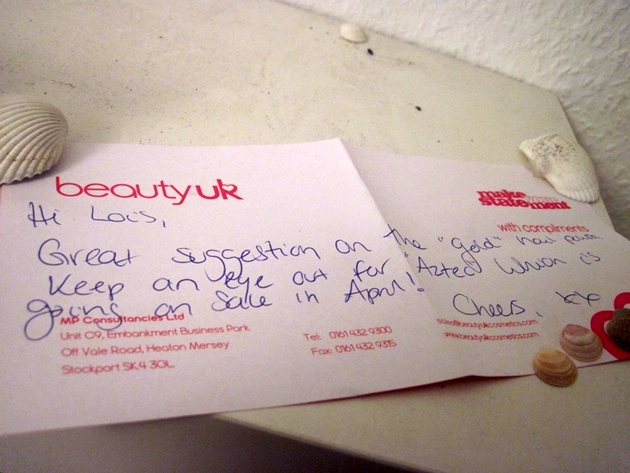 beautyuk
make your statement
with compliments
Hi Lois,
Great suggestion on the "gold" nail
Keep an eye out for 'Aztec' which is
going on sale in April!
Cheers, xx
MP Consultancies Ltd
Unit C9, Embankment Business Park
Off Vale Road, Heaton Mersey
Stockport SK4 3GL
Tel: 0161 432 9300
Fax: 0161 432 9315
sales@beautyukcosmetics.com
www.beautyukcosmetics.com